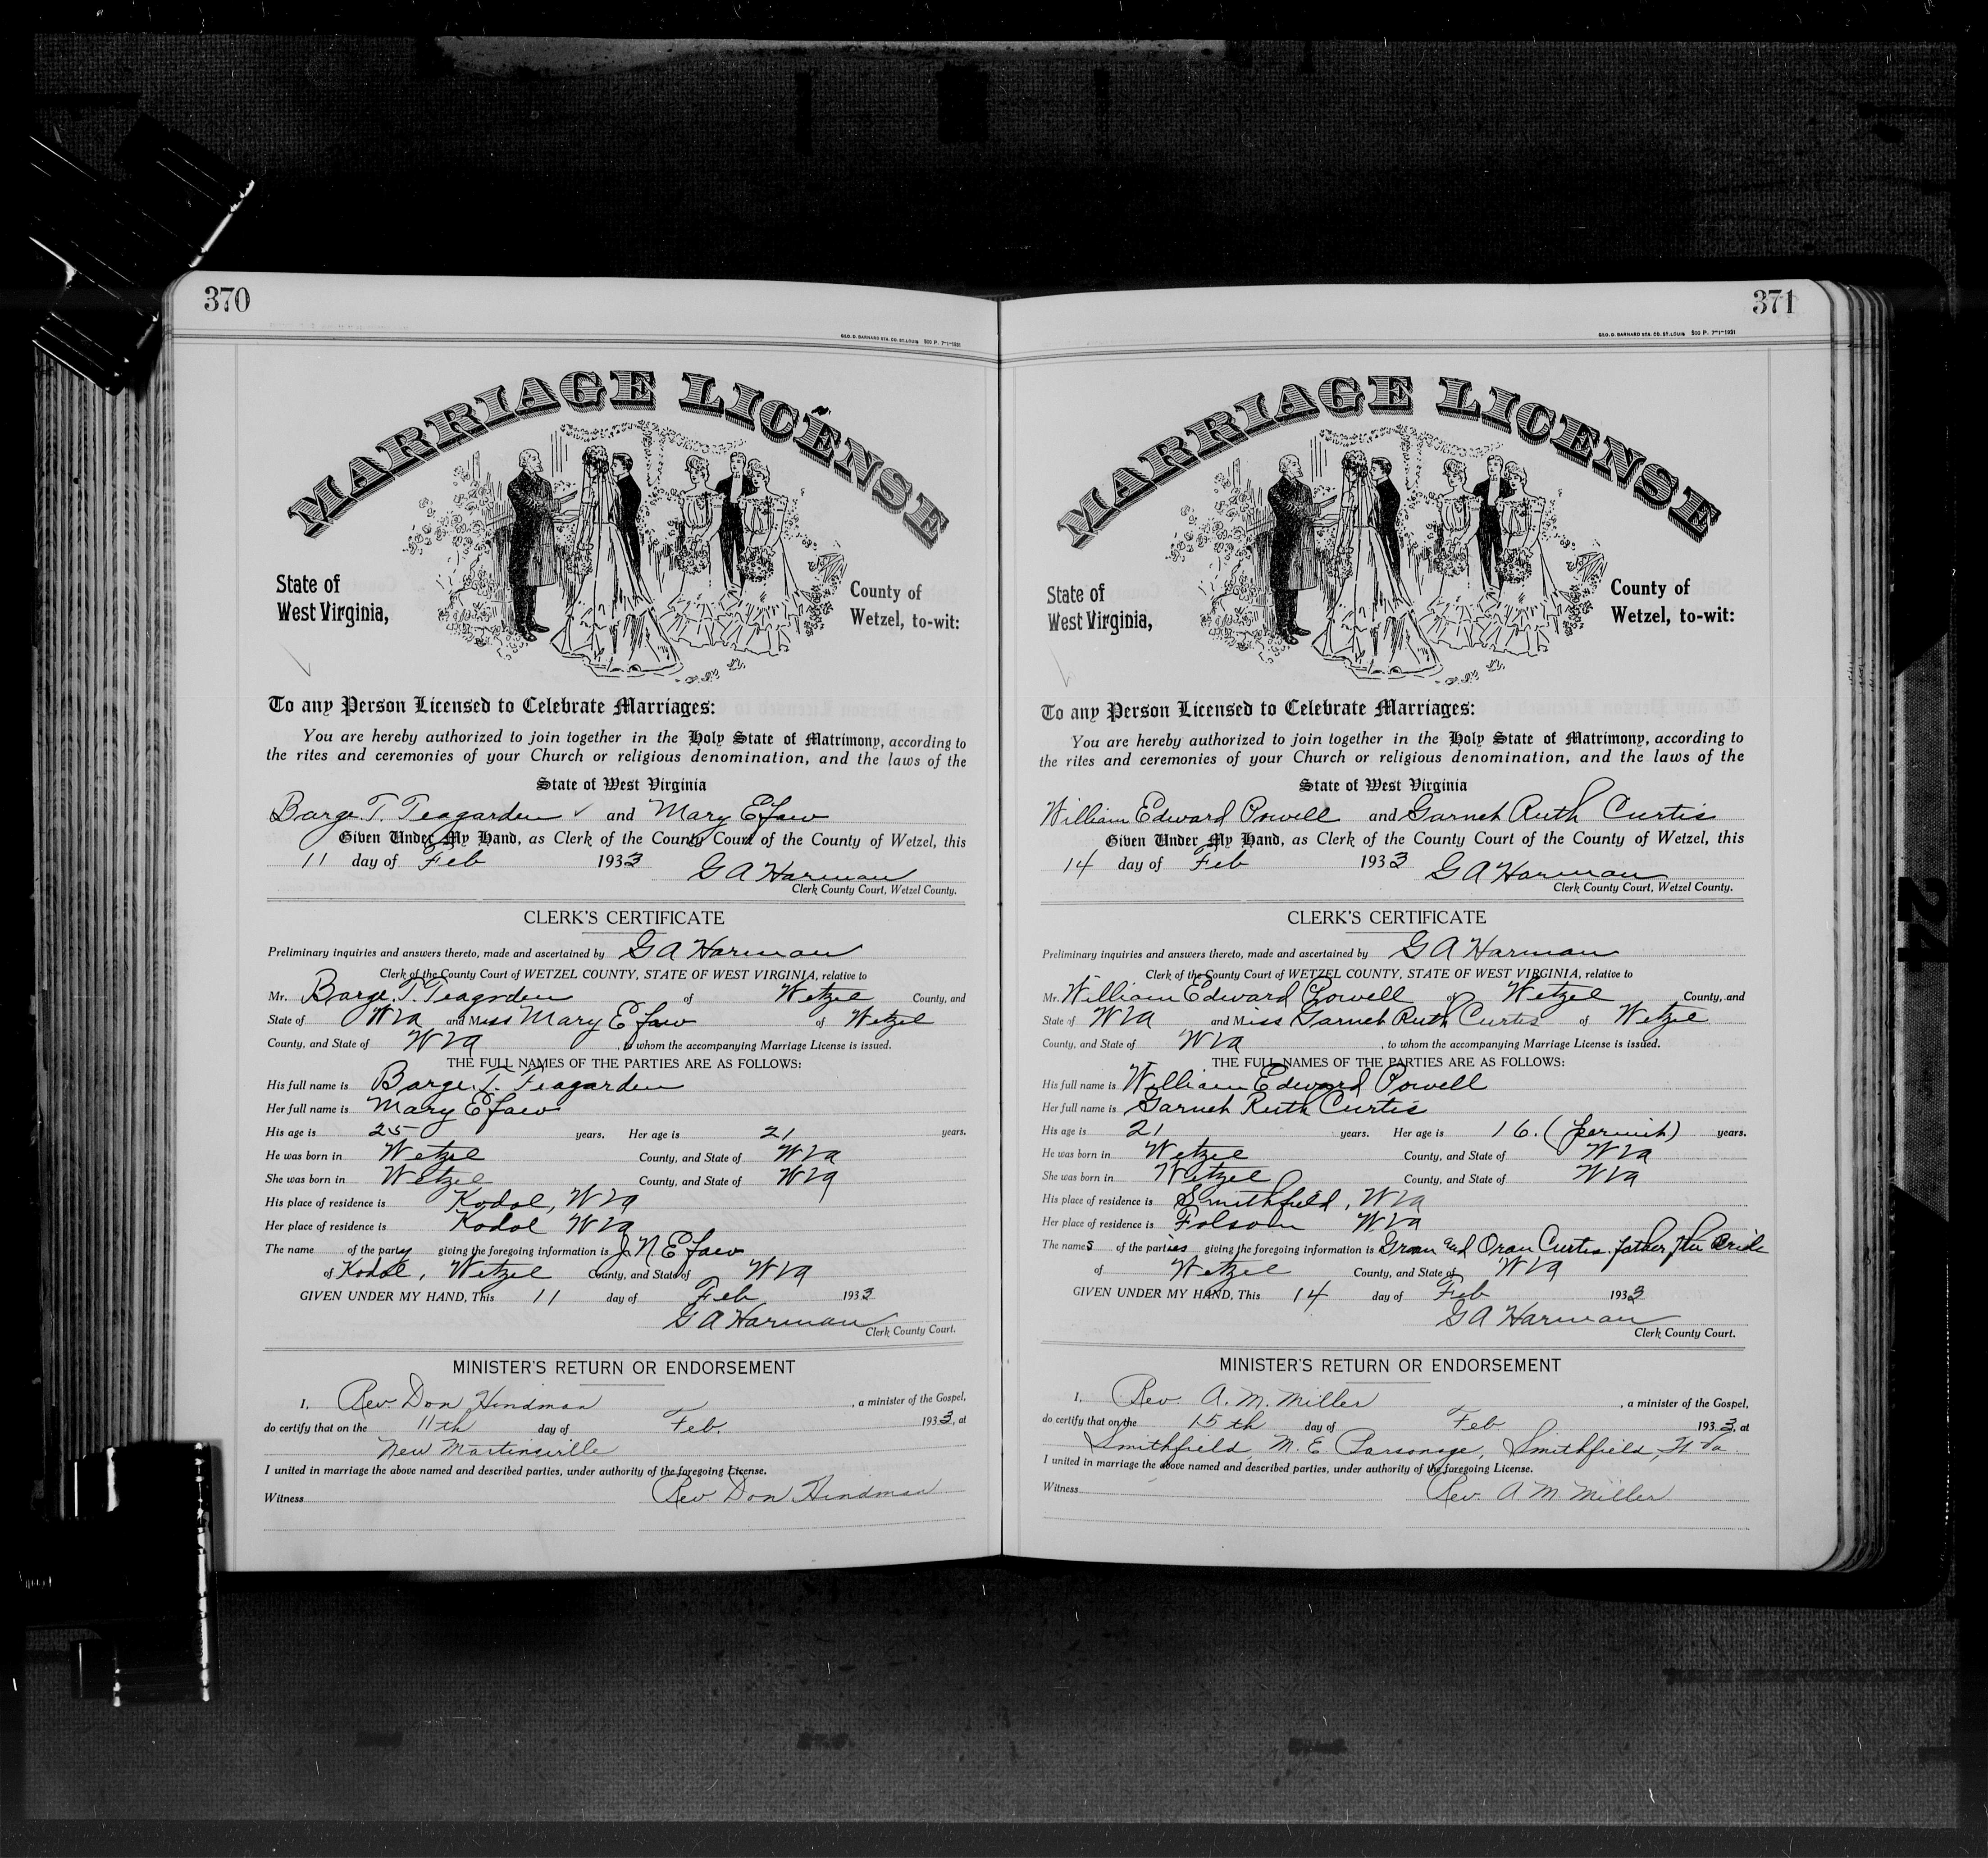 370
GEO. D. BARNARD STA. CO. ST. LOUIS 500 P. 7-1-1931
MARRIAGE LICENSE
State of
West Virginia,
County of
Wetzel, to-wit:
To any Person Licensed to Celebrate Marriages:
You are hereby authorized to join together in the Holy State of Matrimony, according to
the rites and ceremonies of your Church or religious denomination, and the laws of the
State of West Virginia
Barge. T. Teagarden and Mary Efaw
Given Under My Hand, as Clerk of the County Court of the County of Wetzel, this
11 day of Feb 1933 G A Harman
Clerk County Court, Wetzel County.
CLERK'S CERTIFICATE
Preliminary inquiries and answers thereto, made and ascertained by G A Harman
Clerk of the County Court of WETZEL COUNTY, STATE OF WEST VIRGINIA, relative to
Mr. Barge. T. Teagarden of Wetzel County, and
State of W Va and Miss Mary Efaw of Wetzel
County, and State of W Va, to whom the accompanying Marriage License is issued.
THE FULL NAMES OF THE PARTIES ARE AS FOLLOWS:
His full name is Barge. T. Teagarden
Her full name is Mary Efaw
His age is 25 years. Her age is 21 years.
He was born in Wetzel County, and State of W Va
She was born in Wetzel County, and State of W Va
His place of residence is Kodol, W Va
Her place of residence is Kodol W Va
The name of the party giving the foregoing information is J. N Efaw
of Kodol, Wetzel County, and State of W Va
GIVEN UNDER MY HAND, This 11 day of Feb 1933
G A Harman
Clerk County Court.
MINISTER'S RETURN OR ENDORSEMENT
I, Rev Don Hindman, a minister of the Gospel,
do certify that on the 11th day of Feb. 1933, at
New Martinsville
I united in marriage the above named and described parties, under authority of the foregoing License.
Witness Rev. Don Hindman
371
GEO. D. BARNARD STA. CO. ST. LOUIS 500 P. 7-1-1931
MARRIAGE LICENSE
State of
West Virginia,
County of
Wetzel, to-wit:
To any Person Licensed to Celebrate Marriages:
You are hereby authorized to join together in the Holy State of Matrimony, according to
the rites and ceremonies of your Church or religious denomination, and the laws of the
State of West Virginia
William Edward Powell and Garnet Ruth Curtis
Given Under My Hand, as Clerk of the County Court of the County of Wetzel, this
14 day of Feb 1933 G A Harman
Clerk County Court, Wetzel County.
CLERK'S CERTIFICATE
Preliminary inquiries and answers thereto, made and ascertained by G A Harman
Clerk of the County Court of WETZEL COUNTY, STATE OF WEST VIRGINIA, relative to
Mr. William Edward Powell of Wetzel County, and
State of W Va and Miss Garnet Ruth Curtis of Wetzel
County, and State of W Va, to whom the accompanying Marriage License is issued.
THE FULL NAMES OF THE PARTIES ARE AS FOLLOWS:
His full name is William Edward Powell
Her full name is Garnet Ruth Curtis
His age is 21 years. Her age is 16. (permit) years.
He was born in Wetzel County, and State of W Va
She was born in Wetzel County, and State of W Va
His place of residence is Smithfield, W Va
Her place of residence is Folsom W Va
The names of the parties giving the foregoing information is Groom and Oran Curtis. father of the Bride
of Wetzel County, and State of W Va
GIVEN UNDER MY HAND, This 14 day of Feb 1933
G A Harman
Clerk County Court.
MINISTER'S RETURN OR ENDORSEMENT
I, Rev. A. M. Miller, a minister of the Gospel,
do certify that on the 15th day of Feb 1933, at
Smithfield M. E. Parsonage, Smithfield, W. Va.
I united in marriage the above named and described parties, under authority of the foregoing License.
Witness Rev. A M. Miller
24